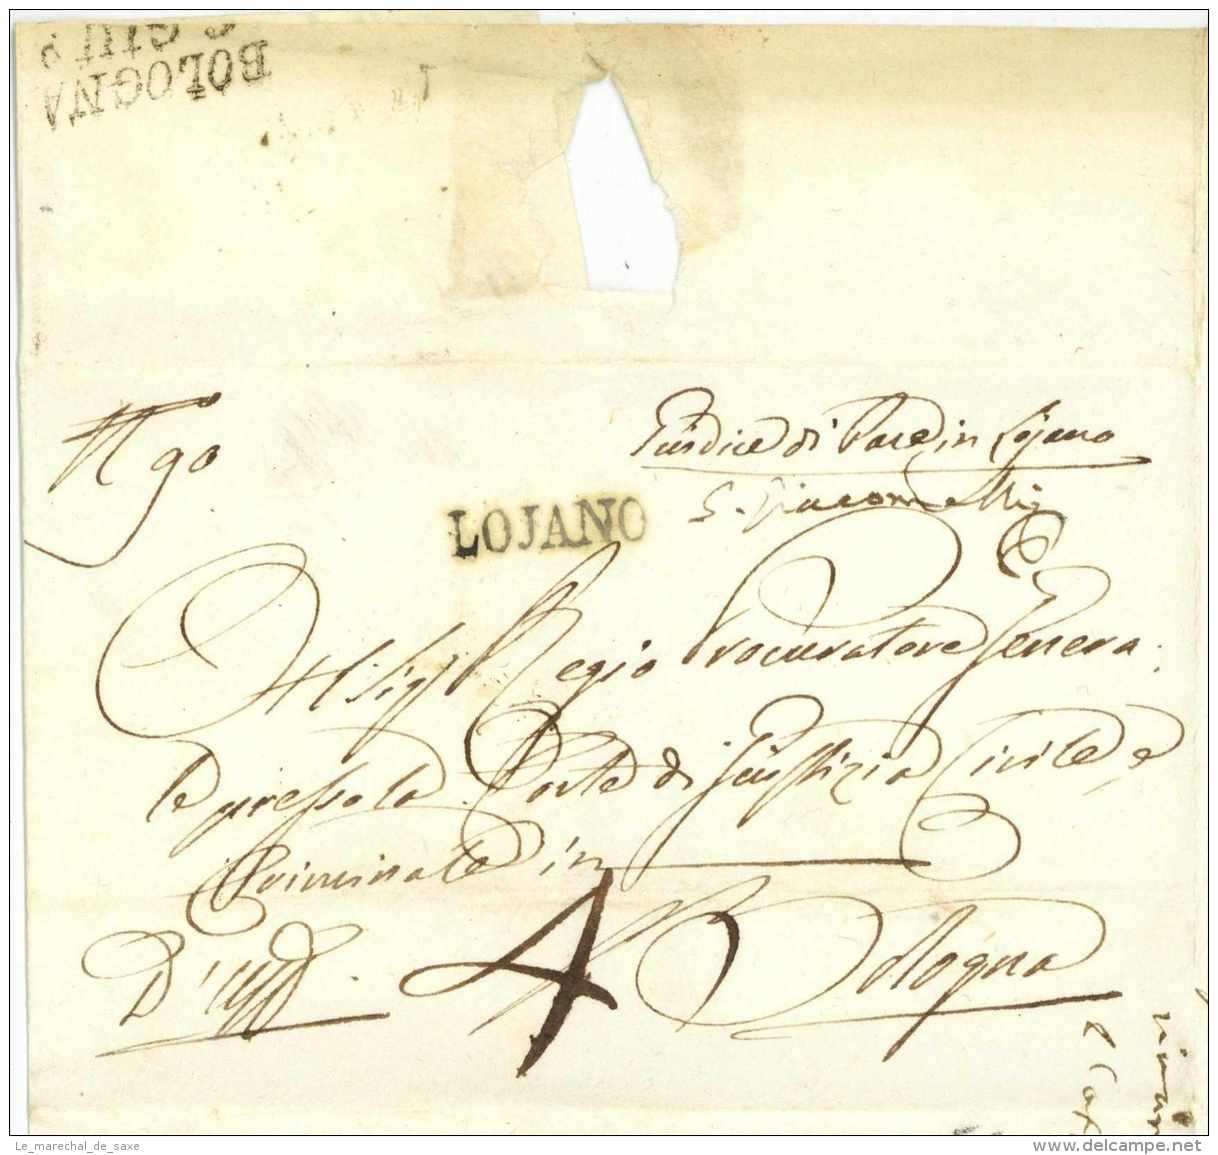 BOLOGNA
GIU
Giudice di Pace in Lojano
LOJANO
S. Giacomelli
Al Sig.r Regio Procuratore Genera:
le presso la Corte di Giustizia Civile, e
Criminale in
D'Uff.
4 Bologna
Le_marechal_de_saxe
delcampe.net